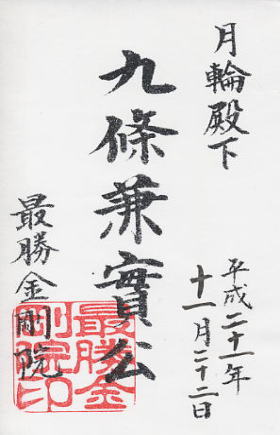 月輪殿下
平成二十一年
十一月二十二日
九條兼實公
最勝金剛院
最勝金
剛院印